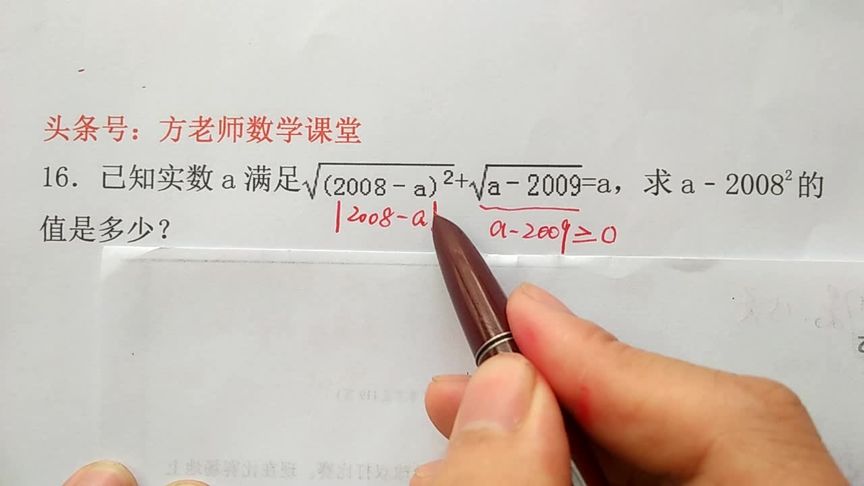 头条号：方老师数学课堂
16. 已知实数 a 满足√(2008－a)²+√a－2009=a，求 a－2008²的
|2008-a| a-2009≥0
值是多少？